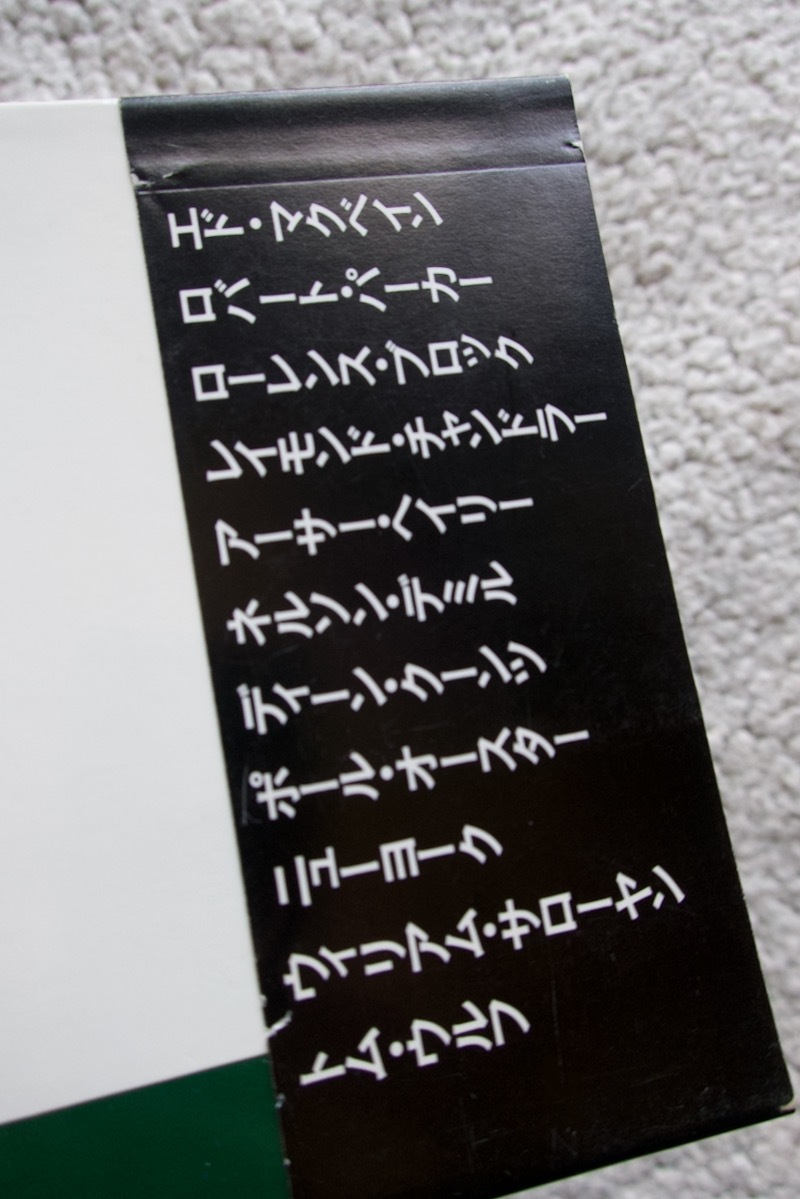 エド・マクベイン
ロバート・パーカー
ローレンス・ブロック
レイモンド・チャンドラー
アーサー・ヘイリー
ネルソン・デミル
ディーン・クーンツ
ポール・オースター
ニューヨーク
ウィリアム・サローヤン
トム・ウルフ